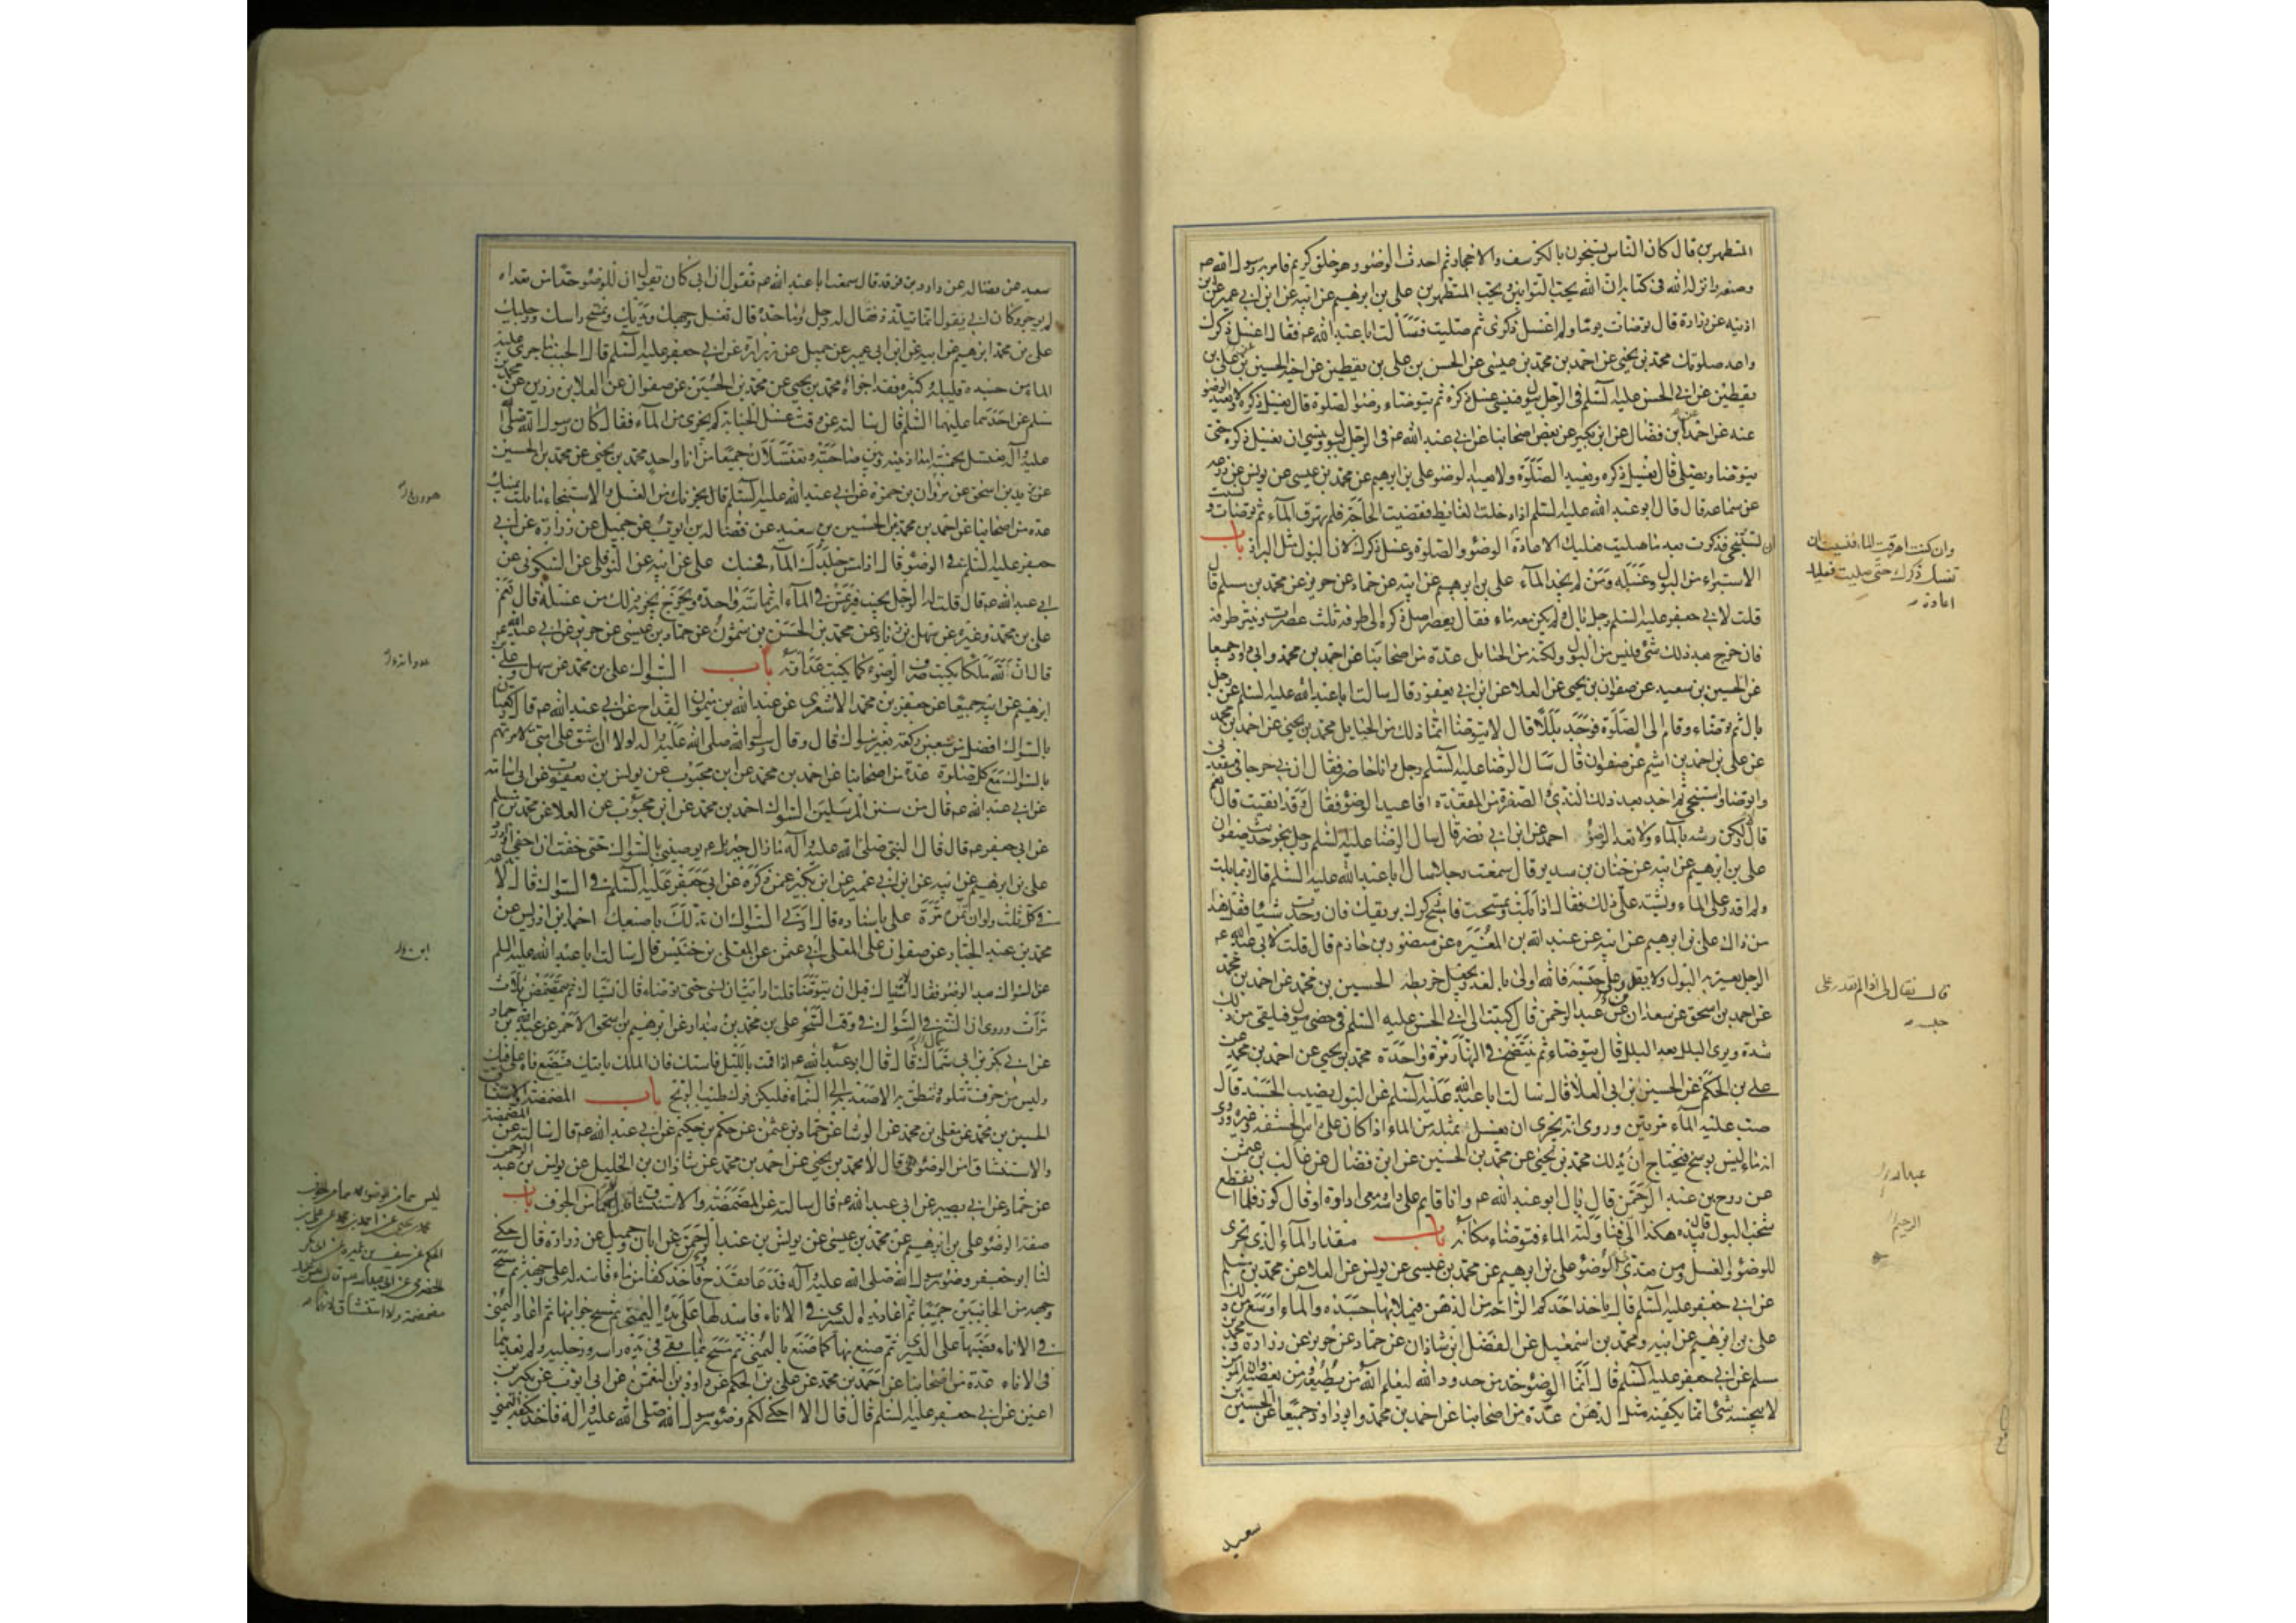 المتطهرين قال كان الناس يستنجون بالكرسف والاحجار ثم احدث الوضوء وهو خلق كريم فامر به رسول الله صم
وصنعه وانزل الله في كتابه ان الله يحب التوابين ويحب المتطهرين علي بن ابرهيم عن ابيه عن ابن ابي عمير عن ابن
اذينه عن زرارة قال توضات يوما ولم اغسل ذكري ثم صليت فسألت ابا عبد الله عم فقال اغسل ذكرك
واعد صلوتك محمد بن يحيى عن احمد بن محمد بن عيسى عن الحسن بن علي بن يقطين عن اخيه الحسين عن علي بن
يقطين عن ابي الحسن عليه السلم في الرجل يبول فينسى غسل ذكره ثم يتوضاء وضوء الصلوة قال يغسل ذكره ولا يعيد الوضوء
عنه عن احمد عن ابن فضال عن ابن بكير عن بعض اصحابنا عن ابي عبد الله عم في الرجل يبول وينسى ان يغسل ذكره حتى
يتوضا ويصلي قال يغسل ذكره ويعيد الصلوة ولا يعيد الوضوء علي بن ابرهيم عن محمد بن عيسى عن يونس عن زرعه
عن سماعه قال قال ابو عبد الله عليه السلم اذا دخلت الغايط فقضيت الحاجة فلم تهرق الماء ثم توضات و نسيت
ان تستنجي فذكرت بعد ما صليت فعليك الاعادة الوضوء والصلوة وغسل ذكرك لان البول مثل البراز باب
الاستبراء من البول وغسله ومن لم يجد الماء علي بن ابرهيم عن ابيه عن حماد عن حريز عن محمد بن مسلم قال
قلت لابي جعفر عليه السلم رجل بال ولم يكن معه ماء فقال يعصر اصل ذكره الى طرفه ثلث عصرات وينتر طرفه
فان خرج بعد ذلك شئ فليس من البول ولكنه من الحبايل عدة من اصحابنا عن احمد بن محمد وابي داود جميعا
عن الحسين بن سعيد عن صفوان بن يحيى عن العلا عن ابن ابي يعفور قال سالت ابا عبد الله عليه السلم عن رجل
بال ثم توضاء وقام الى الصلوة فوجد بللا قال لا يتوضا انما ذلك من الحبايل محمد بن يحيى عن احمد بن محمد
عن علي بن احمد بن اشيم عن صفوان قال سال الرضا عليه السلم رجل وانا حاضر فقال ان بي جرحا في مقعدتي
واتوضا واستنجي ثم اجد بعد ذلك الندي الصفرة من المقعدة افاعيد الوضوء فقال وقد انقيت قال نعم
قال لا ولكن رشه بالماء ولا تعد الوضوء احمد عن ابن ابي نصر قال سال الرضا عليه السلم رجل بنحو حديث صفوان
علي بن ابرهيم عن ابيه عن حنان بن سدير قال سمعت رجلا سال ابا عبد الله عليه السلم قال ربما بلت
ولم اقدر على الماء ويشتد علي ذلك فقال اذا بلت وتمسحت فامسح ذكرك بريقك فان وجدت شيئا فقل هذا
من ذاك علي بن ابرهيم عن ابيه عن عبد الله بن المغيرة عن منصور بن حازم قال قلت لابي عبد الله عم
الرجل يعتريه البول ولا يقدر على حبسه فالله اولى بالعذر يجعل خريطه الحسين بن محمد عن احمد بن محمد
عن احمد بن اسحق عن سعدان عن عبد الرحمن قال كتبت الى ابي الحسن عليه السلم في خصي يبول فيلقى من ذلك
شدة ويرى البلل بعد البلل قال يتوضاء ثم ينتضح في النهار مرة واحدة محمد بن يحيى عن احمد بن محمد عن
علي بن الحكم عن الحسين بن ابي العلا قال سالت ابا عبد الله عليه السلم عن البول يصيب الجسد قال
صب عليه الماء مرتين وروى انه يجزي ان يغسل بمثله من الماء اذا كان على راس الحشفه وغيره وروى
انه ماء ليس بوسخ فيحتاج ان يدلك محمد بن يحيى عن محمد بن الحسين عن ابن فضال عن غالب بن عثمن
عن روح بن عبد الرحمن قال بال ابو عبد الله عم وانا قايم على راسه معي اداوة او قال كوز فلما انقطع
شخب البول قال بيده هكذا الي فناولته الماء فتوضاء مكانه باب مقدار الماء الذي تجزي
للوضوء والغسل ومن تعدى في الوضوء علي بن ابرهيم عن محمد بن عيسى عن يونس عن العلا عن محمد بن مسلم
عن ابي جعفر عليه السلم قال ياخذ احدكم الراحة من الدهن فيملا بها جسده والماء اوسع من ذلك
علي بن ابرهيم عن ابيه ومحمد بن اسمعيل عن الفضل ابن شاذان عن حماد عن حريز عن زرارة ومحمد بن
مسلم عن ابي جعفر عليه السلم قال انما الوضوء حد من حدود الله ليعلم الله من يطيعه ومن يعصيه وان المؤمن
لا ينجسه شئ انما يكفيه مثل الدهن عدة من اصحابنا عن احمد بن محمد وابو داود جميعا عن الحسين بن
وان كنت اهرقت الماء فنسيت ان
تغسل ذكرك حتى صليت فعليك
اعادة
قال فقال لي اذا لم يقدر على
حبسه
الرحيم
سعيد
سعيد عن فضاله عن داود بن فرقد قال سمعت ابا عبد الله عم فقول ان ابي كان يقول ان للوضوء حدا من تعداه
لم يوجر وكان ابي يقول انما يتلدد فقال له رجل وما حده قال تغسل وجهك ويديك وتمسح راسك ورجليك
علي بن محمد ابرهيم عن ابيه عن ابن ابي عمير عن جميل عن زرارة عن ابي جعفر عليه السلم قال الجنب ما جرى عليه
الماء من جسده قليله كثيره فقد اجزاءه محمد بن يحيى عن محمد بن الحسين عن صفوان عن العلا بن رزين عن محمد بن
مسلم عن احدهما عليهما السلم قال سالته عن وقت غسل الجنابة كم يجزي من الماء فقال كان رسول الله صلى الله
عليه وآله يغتسل بخمسة امداد بينه وبين صاحبته يغتسلان جميعا من اناء واحد محمد بن يحيى عن محمد بن الحسين
عن يزيد بن اسحق عن هرون بن حمزة عن ابي عبد الله عليه السلم قال يجزيك من الغسل والاستنجاء ما بلت يمينك
عدة من اصحابنا عن احمد بن محمد عن الحسين بن سعيد عن فضاله بن ايوب عن جميل عن زرارة عن ابي
جعفر عليه السلم في الوضوء قال اذا مس جلدك الماء فحسبك علي عن ابيه عن النوفلي عن السكوني عن
ابي عبد الله عم قال قلت له الرجل يجنب فيرتمس في الماء ارتماسة واحدة ويخرج يجزيه ذلك من غسله قال نعم
علي بن محمد وغيره عن سهل بن زياد عن محمد بن الحسن بن شمون عن حماد بن عيسى عن حريز عن ابي عبد الله عم
قال ان لله ملكا يكتب سرف الوضوء كما يكتب عدوانه باب السواك علي بن محمد عن سهل وعلي بن
ابرهيم عن ابيه جميعا عن جعفر بن محمد الاشعري عن عبد الله بن ميمون القداح عن ابي عبد الله عم قال ركعتان
بالسواك افضل من سبعين ركعة بغير سواك قال وقال رسول الله صلى الله عليه واله لولا ان اشق على امتي لامرتهم
بالسواك مع كل صلوة عدة من اصحابنا عن احمد بن محمد عن ابن محبوب عن يونس بن يعقوب عن ابي اسامة
عن ابي عبد الله عم قال من سنن المرسلين السواك احمد بن محمد عن ابن محبوب عن العلا عن محمد بن مسلم
عن ابي جعفر عم قال قال النبي صلى الله عليه وآله ما زال جبرئيل عم يوصيني بالسواك حتى خفت ان احفي او ادرد
علي بن ابرهيم عن ابيه عن ابن ابي عمير عن ابن بكير عمن ذكره عن ابي جعفر عليه السلم في السواك قال لا تدعه
في كل ثلث ولو ان تمره مرة علي باسناده قال ادنى السواك ان تدلك باصبعك احمد بن ادريس عن
محمد بن عبد الجبار عن صفوان عن المعلى ابي عثمن عن المعلى بن خنيس قال سالت ابا عبد الله عليه السلم
عن السواك بعد الوضوء فقال الاستياك قبل ان يتوضا قلت ارايت ان نسي حتى توضاء قال يستاك ثم يتمضمض ثلاث
مرات وروى ان السنة في السواك في وقت السحر علي بن محمد بن بندار عن ابرهيم بن اسحق الاحمر عن عبد الله بن حماد
عن ابي بكر بن ابي سماك قال قال ابو عبد الله عم اذا قمت بالليل فاستك فان الملك ياتيك فيضع فاه على فيك
وليس من حرف تتلوه وتنطق به الا صعد به الى السماء فليكن فوك طيب الريح باب المضمضة والاستنشاق
الحسين بن محمد عن معلى بن محمد عن الوشا عن حماد بن عثمن عن حكم بن حكيم عن ابي عبد الله عم قال سالته عن المضمضة
والاستنشاق امن الوضوء هي قال لا محمد بن يحيى عن احمد بن محمد عن شاذان بن الخليل عن يونس بن عبد الرحمن
عن حماد عن ابي بصير عن ابي عبد الله عم قال سالته عن المضمضة والاستنشاق قال هما من الجوف باب
صفة الوضوء علي بن ابرهيم عن محمد بن عيسى عن يونس بن عبد الرحمن عن ابان وجميل عن زرارة قال حكى
لنا ابو جعفر وضوء رسول الله صلى الله عليه وآله فدعا بقدح فاخذ كفا من ماء فاسدله على وجهه ثم مسح
وجهه من الجانبين جميعا ثم اعاد يده اليسرى في الاناء فاسدلها على يده اليمنى ثم مسح جوانبها ثم اعاد اليمنى
في الاناء فصبها على اليسرى ثم صنع بها كما صنع باليمنى ثم مسح بما بقي في يده راسه ورجليه ولم يعدهما
في الاناء عدة من اصحابنا عن احمد بن محمد عن علي بن الحكم عن داود بن النعمن عن ابي ايوب عن بكير بن
اعين عن ابي جعفر عليه السلم قال قال الا احكي لكم وضوء رسول الله صلى الله عليه واله فاخذ بكفه اليمنى